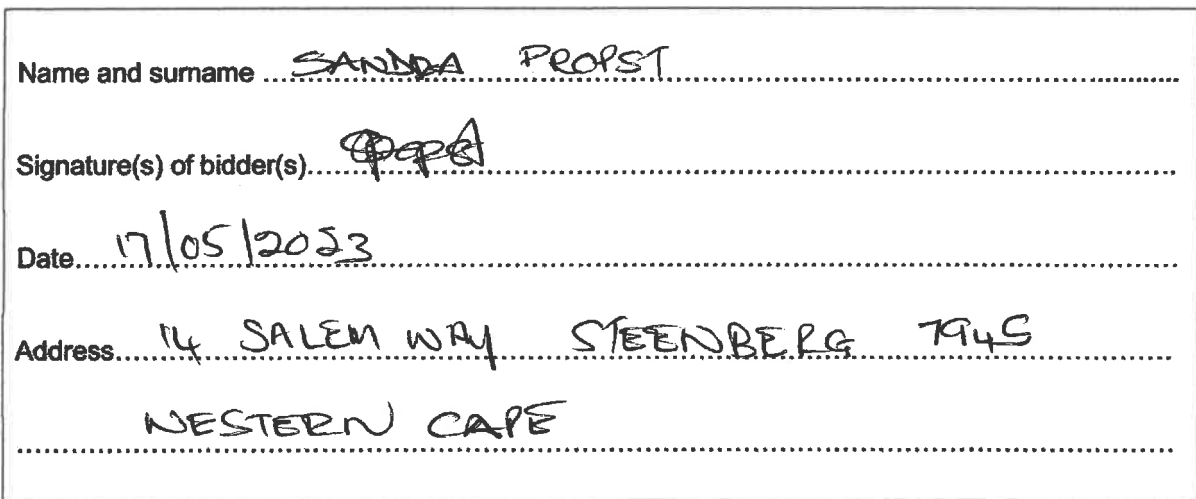 Name and surname SANDRA PROPST
Signature(s) of bidder(s)
Date 17/05/2023
Address 14 SALEM WAY STEENBERG 7945
WESTERN CAPE